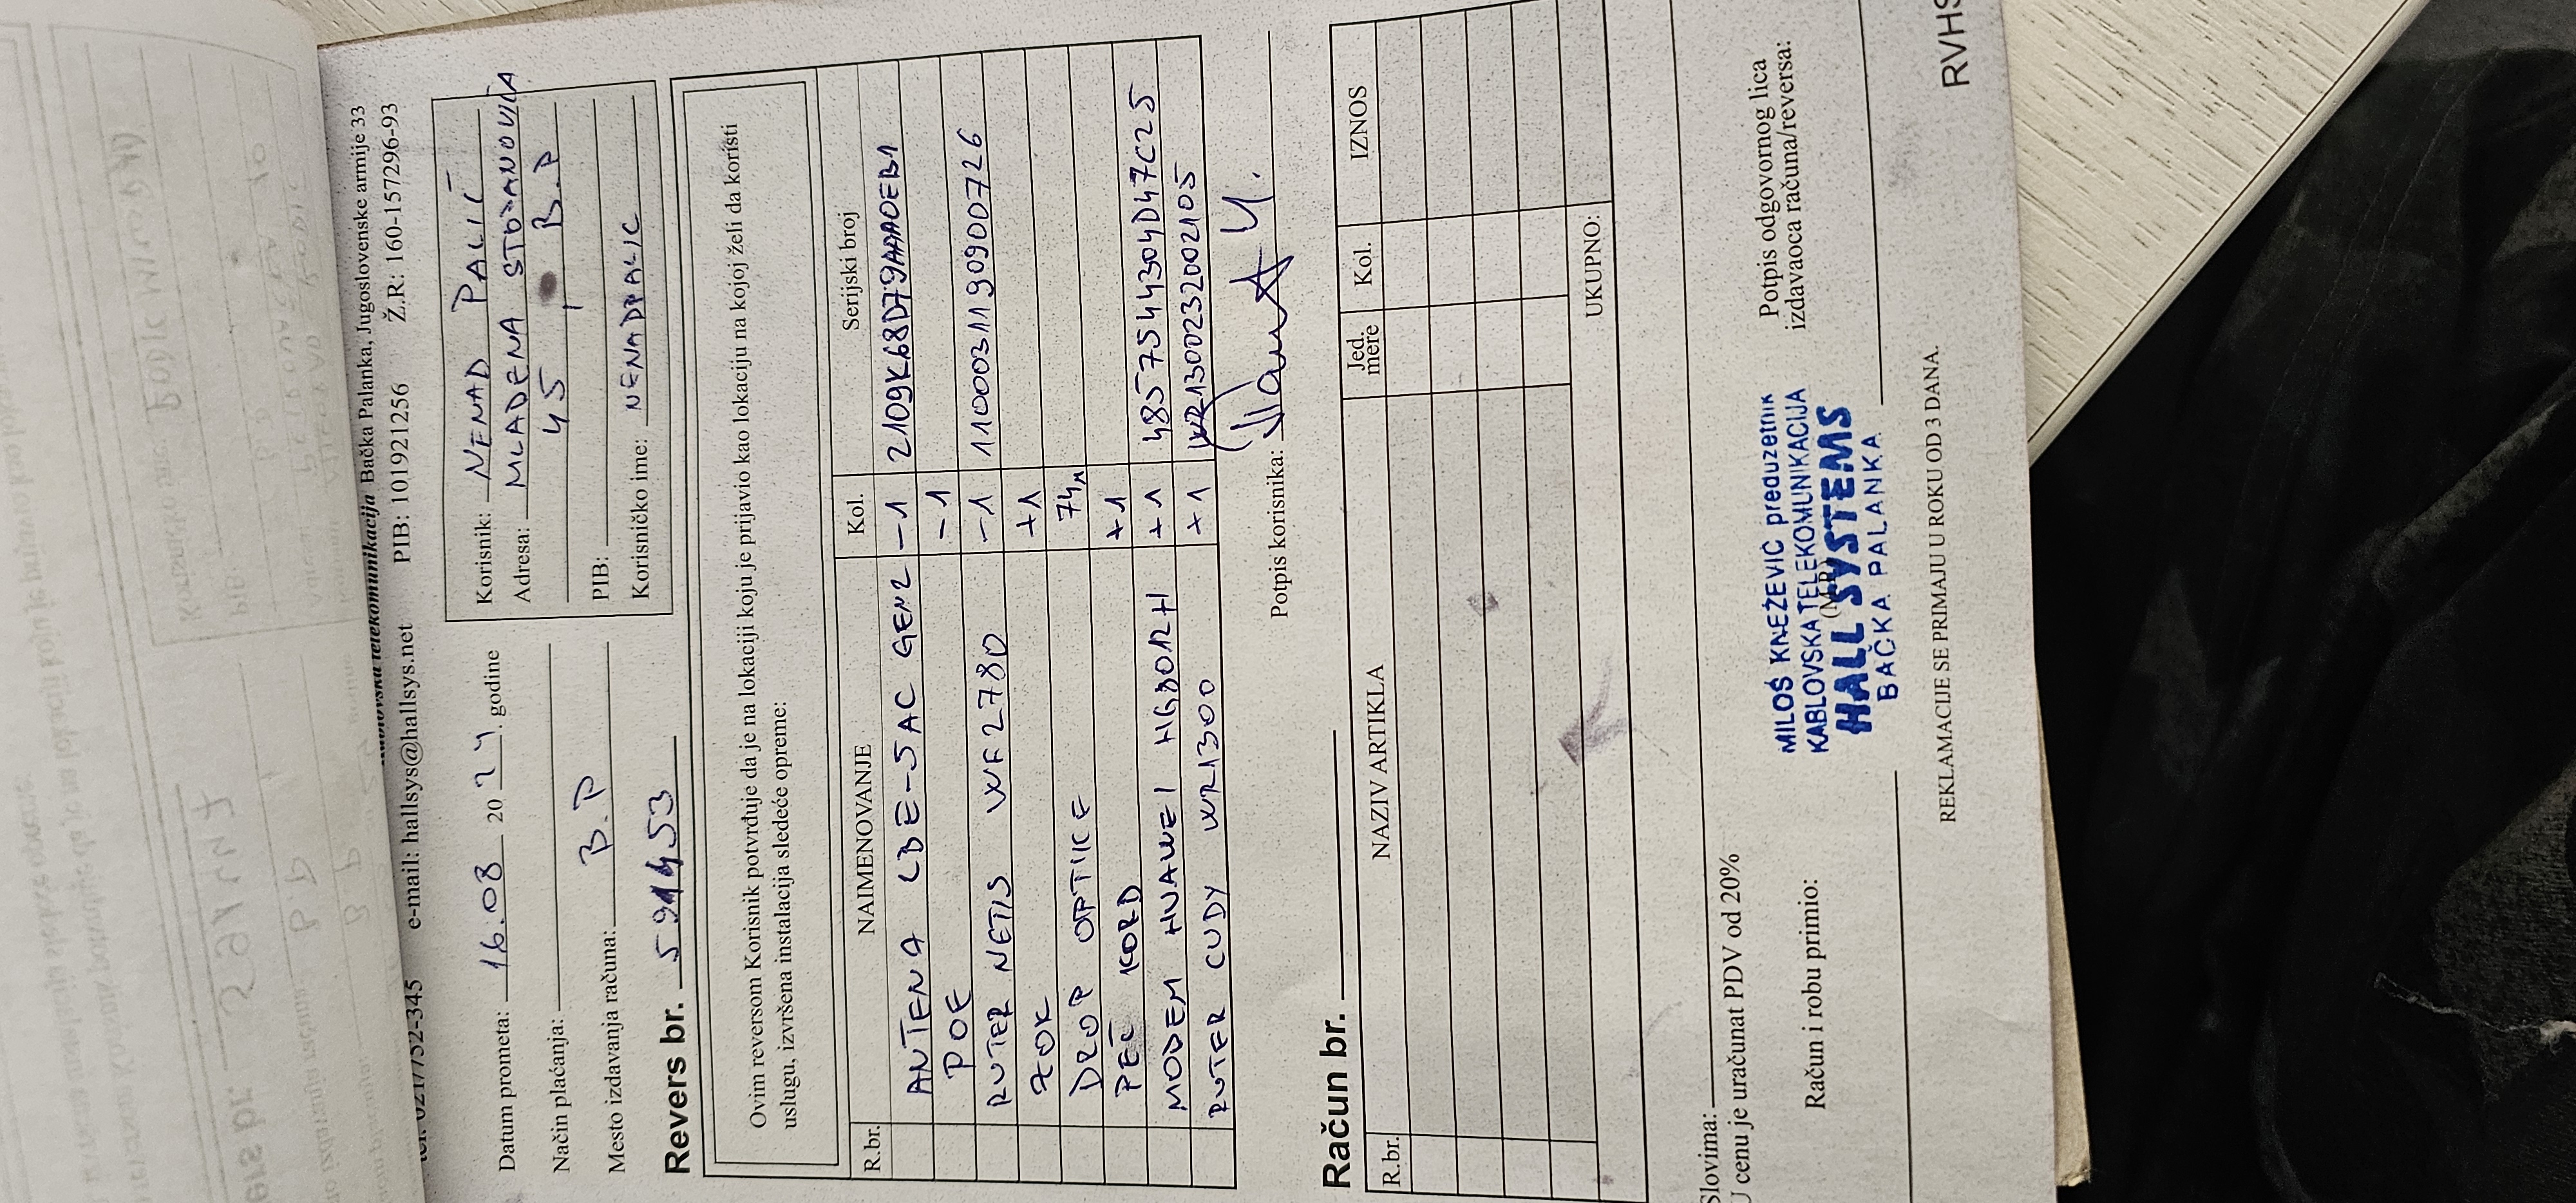 kablovska telekomunikacija Bačka Palanka, Jugoslovenske armije 33
tel. 021/752-345 e-mail: hallsys@hallsys.net PIB: 101921256 Ž.R: 160-157296-93
Datum prometa: 16.08 2024. godine
Način plaćanja:
Mesto izdavanja računa: B.P
Korisnik: NENAD PALIĆ
Adresa: MLADENA STOJANOVIĆA
45, B.P
PIB:
Korisničko ime: NENADPALIC
Revers br. 591453
Ovim reversom Korisnik potvrđuje da je na lokaciji koju je prijavio kao lokaciju na kojoj želi da koristi
uslugu, izvršena instalacija sledeće opreme:
R.br. NAIMENOVANJE Kol. Serijski broj
ANTENA LBE-5AC GEN2 -1 2109K68D79AAA0EB1
POE -1
RUTER NETIS WF2780 -1 1100031190900726
ZOK +1
DROP OPTIKE 74m
PEČ KORD +1
MODEM HUAWEI HG8012H +1 4857544304D47C25
RUTER CUDY WR1300 +1 WR13002320021 05
Potpis korisnika:
Račun br.
R.br. NAZIV ARTIKLA Jed. mere Kol. IZNOS
UKUPNO:
Slovima:
U cenu je uračunat PDV od 20%
Račun i robu primio:
(M.P.)
Potpis odgovornog lica
izdavaoca računa/reversa:
MILOŠ KNEŽEVIĆ preduzetnik
KABLOVSKA TELEKOMUNIKACIJA
HALL SYSTEMS
BAČKA PALANKA
REKLAMACIJE SE PRIMAJU U ROKU OD 3 DANA.
RVHS